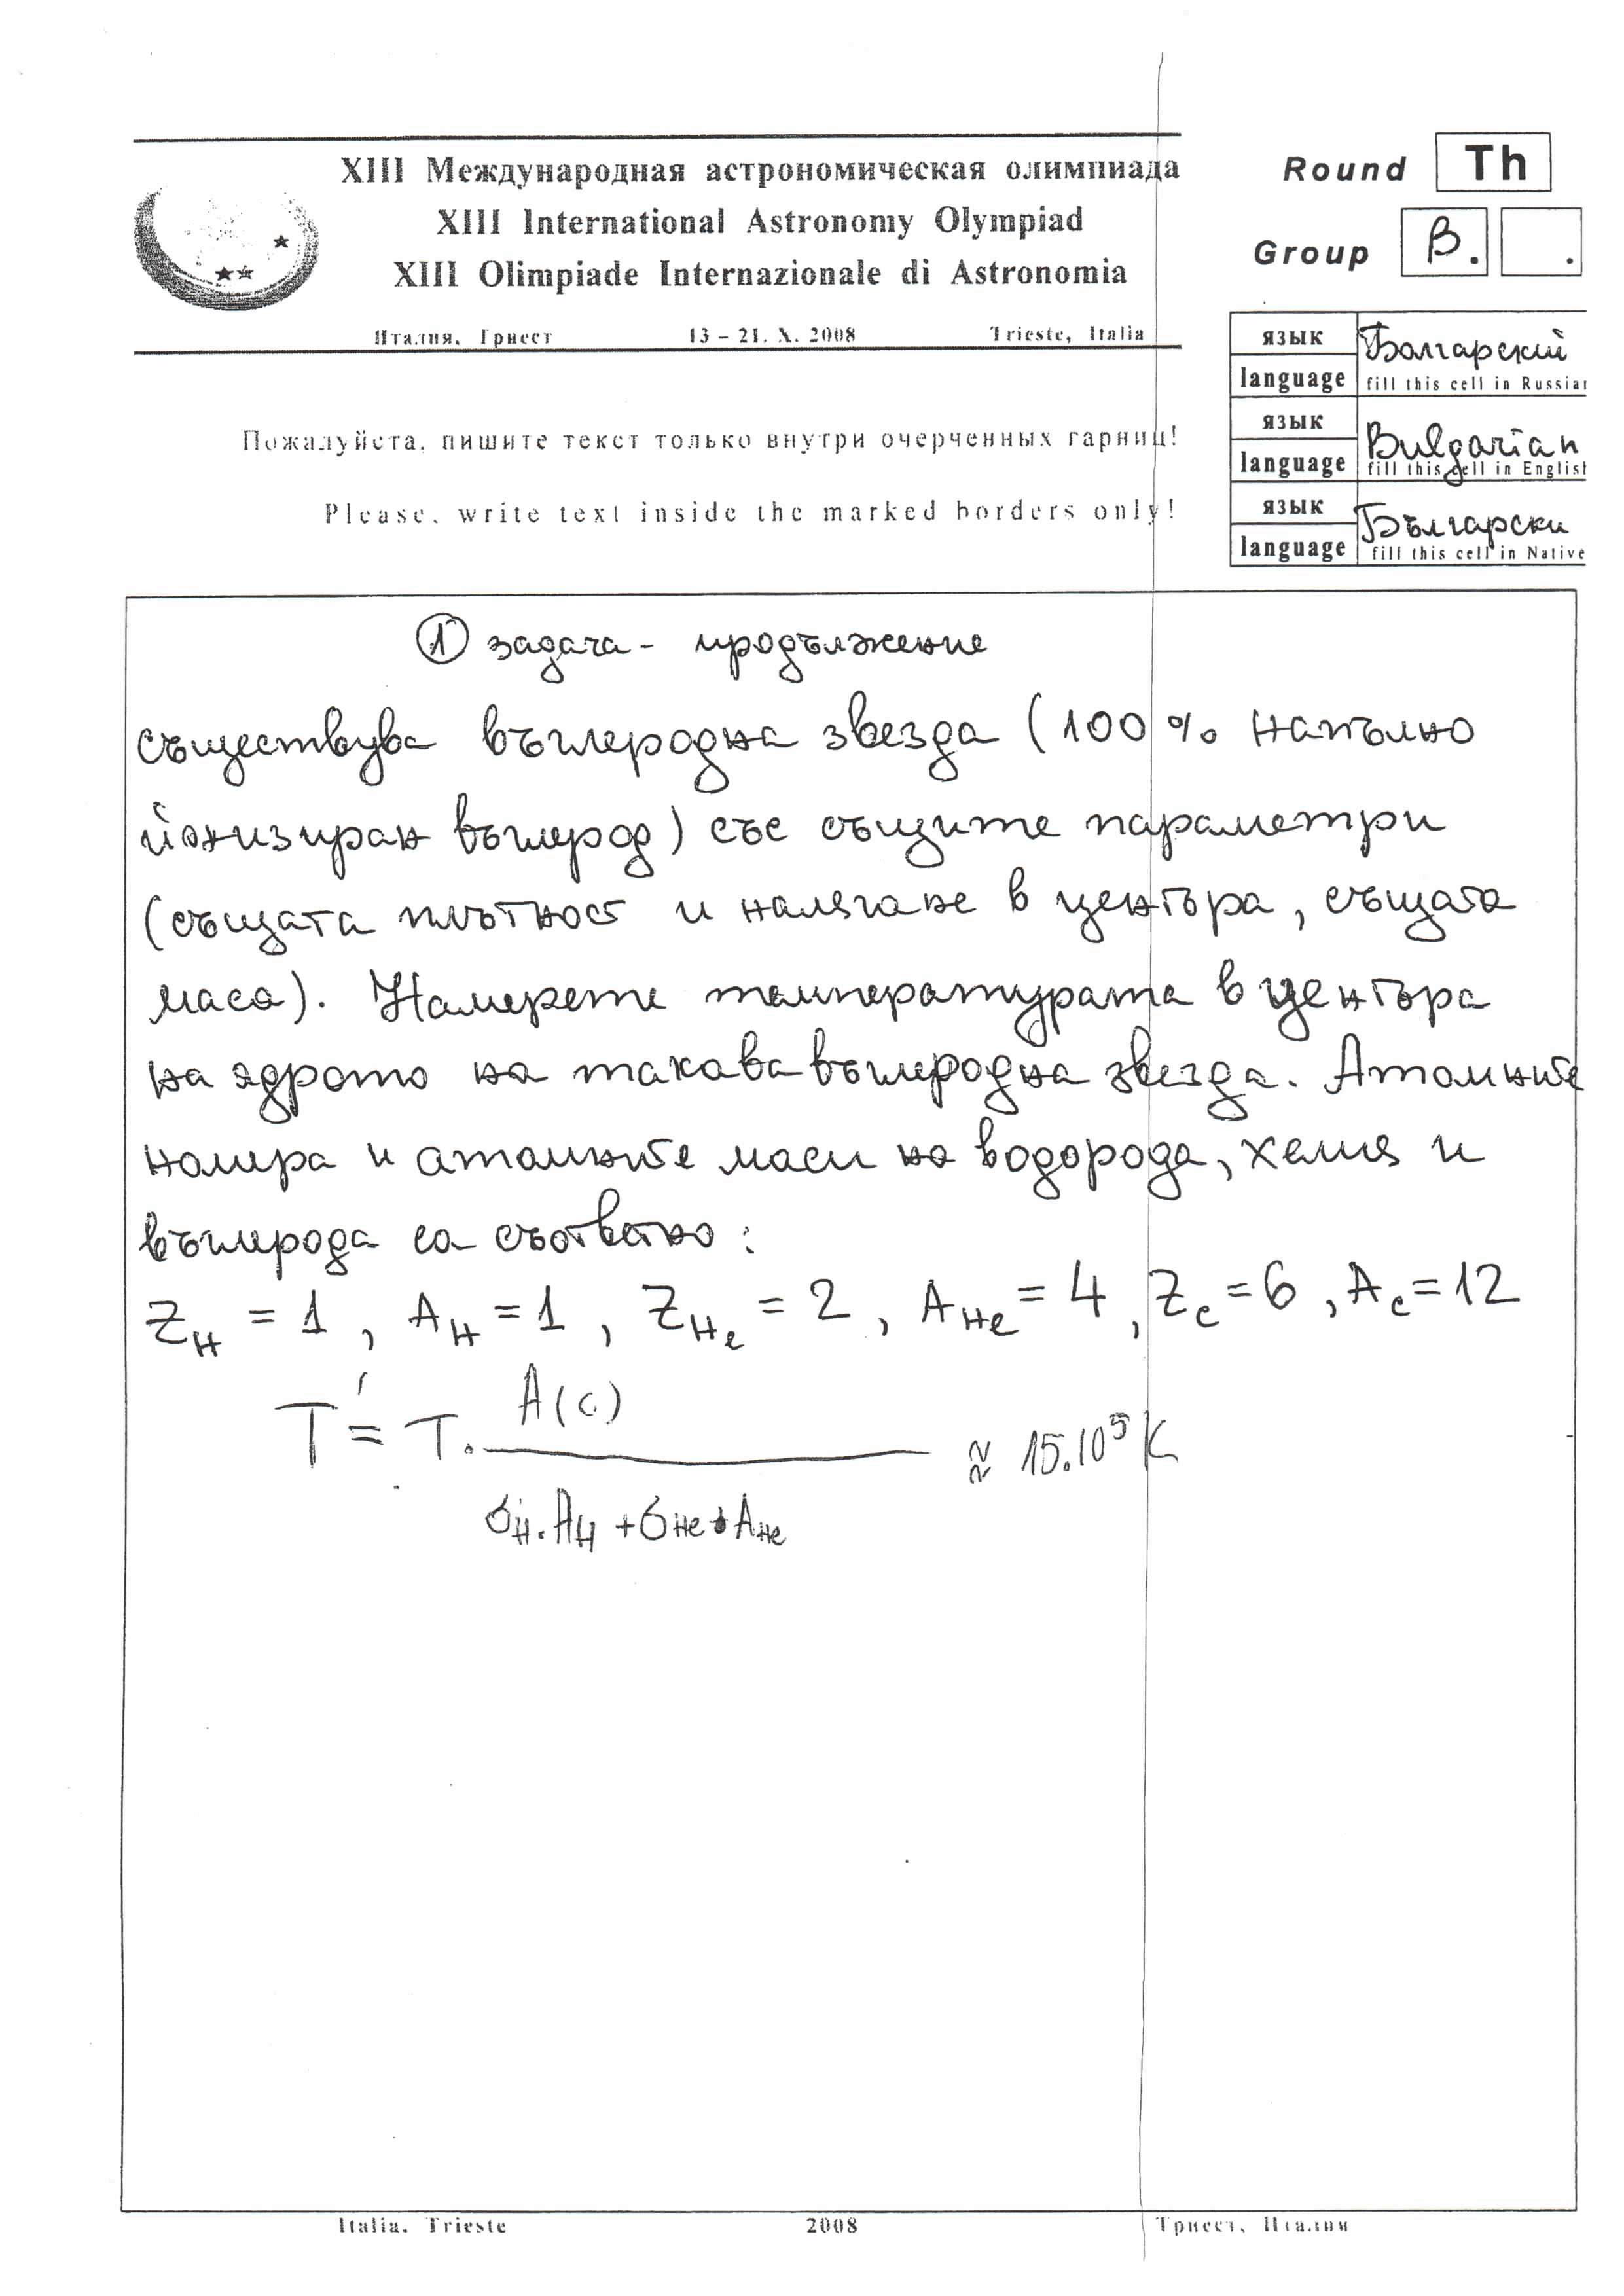 XIII Международная астрономическая олимпиада
XIII International Astronomy Olympiad
XIII Olimpiade Internazionale di Astronomia
Италия, Триест 13 – 21. X. 2008 Trieste, Italia
Round Th
Group β. .
язык Болгарский
language fill this cell in Russian
язык Bulgarian
language fill this cell in English
язык Български
language fill this cell in Native
Пожалуйста, пишите текст только внутри очерченных гарниц!
Please, write text inside the marked borders only!
① задача - продължение
съществува въглеродна звезда (100 % напълно
йонизиран въглерод) със същите параметри
(същата плътност и налягане в центъра, същата
маса). Намерете температурата в центъра
на ядрото на такава въглеродна звезда. Атомните
номера и атомните маси на водорода, хелия и
въглерода са съответно:
Z_H = 1, A_H = 1, Z_He = 2, A_He = 4, Z_c = 6, A_c = 12
T' = T. A(c) / (σ_H.A_H + σ_He.A_He) ≈ 15.10^5 K
Italia, Trieste 2008 Триест, Италия